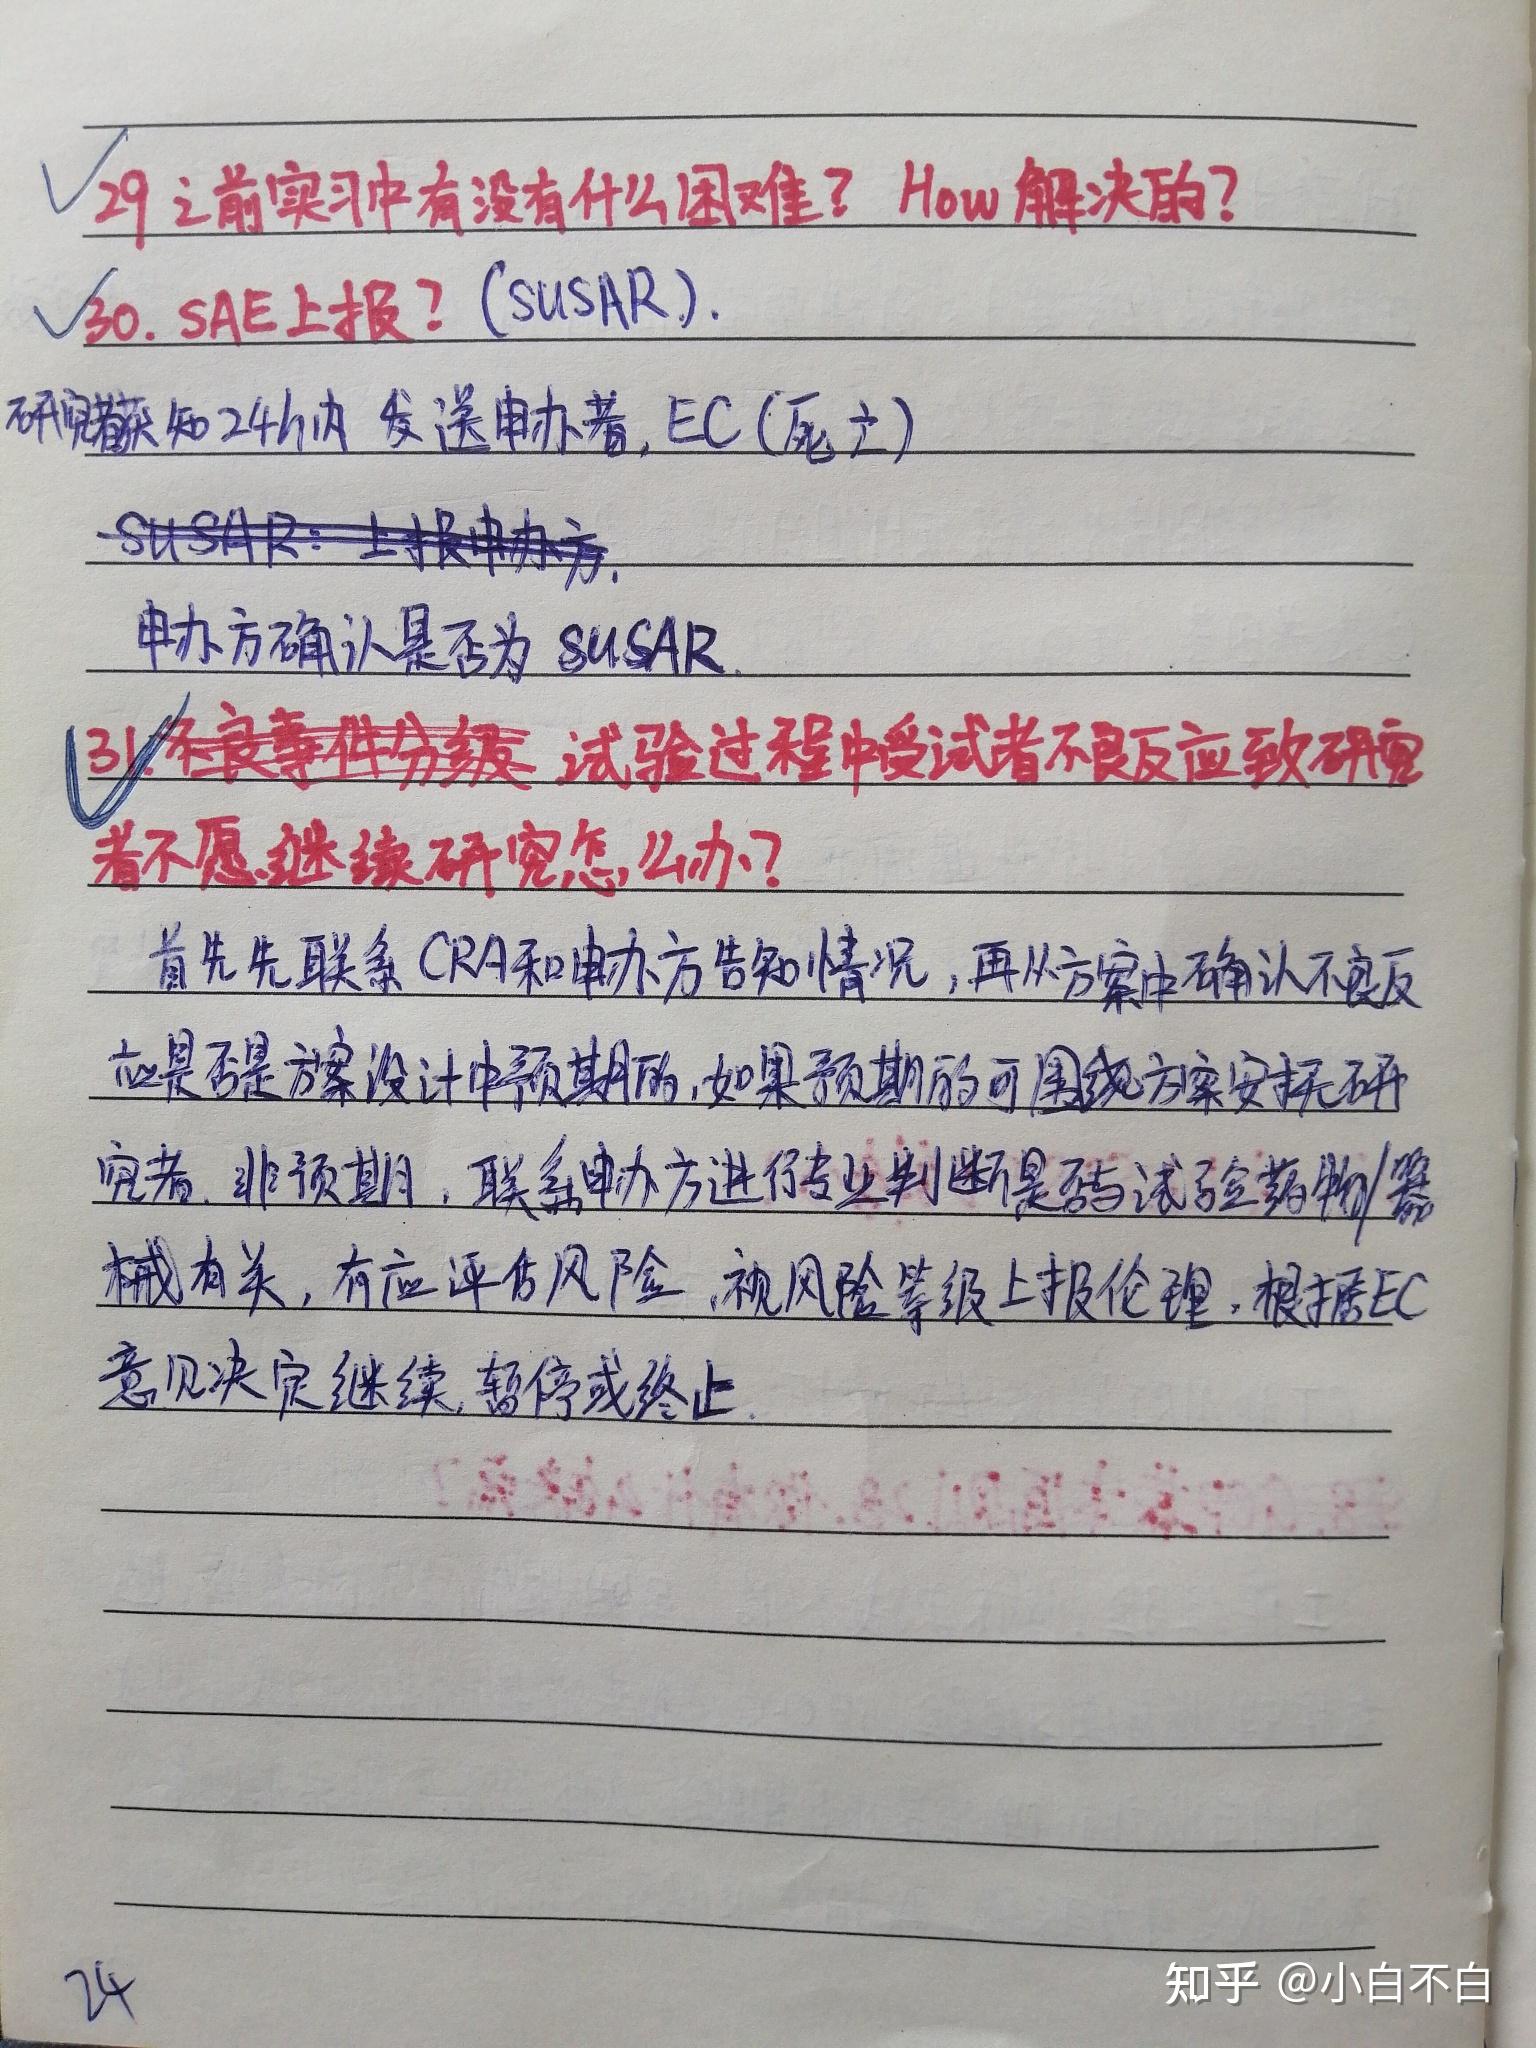 29 之前实习中有没有什么困难? How 解决的?
30. SAE上报? (SUSAR).
研究者获知24h内 发送申办者, EC (死亡)
SUSAR: 上报申办方.
申办方确认是否为 SUSAR.
31. 不良事件分级 试验过程中受试者不良反应致研究
者不愿继续研究怎么办?
首先先联系CRA和申办方告知情况, 再从方案中确认不良反
应是否是方案设计中预期的, 如果预期的可围绕方案安抚研
究者. 非预期, 联系申办方进行专业判断是否与试验药物/器
械有关, 有应评估风险, 视风险等级上报伦理, 根据EC
意见决定继续, 暂停或终止.
24
知乎 @小白不白